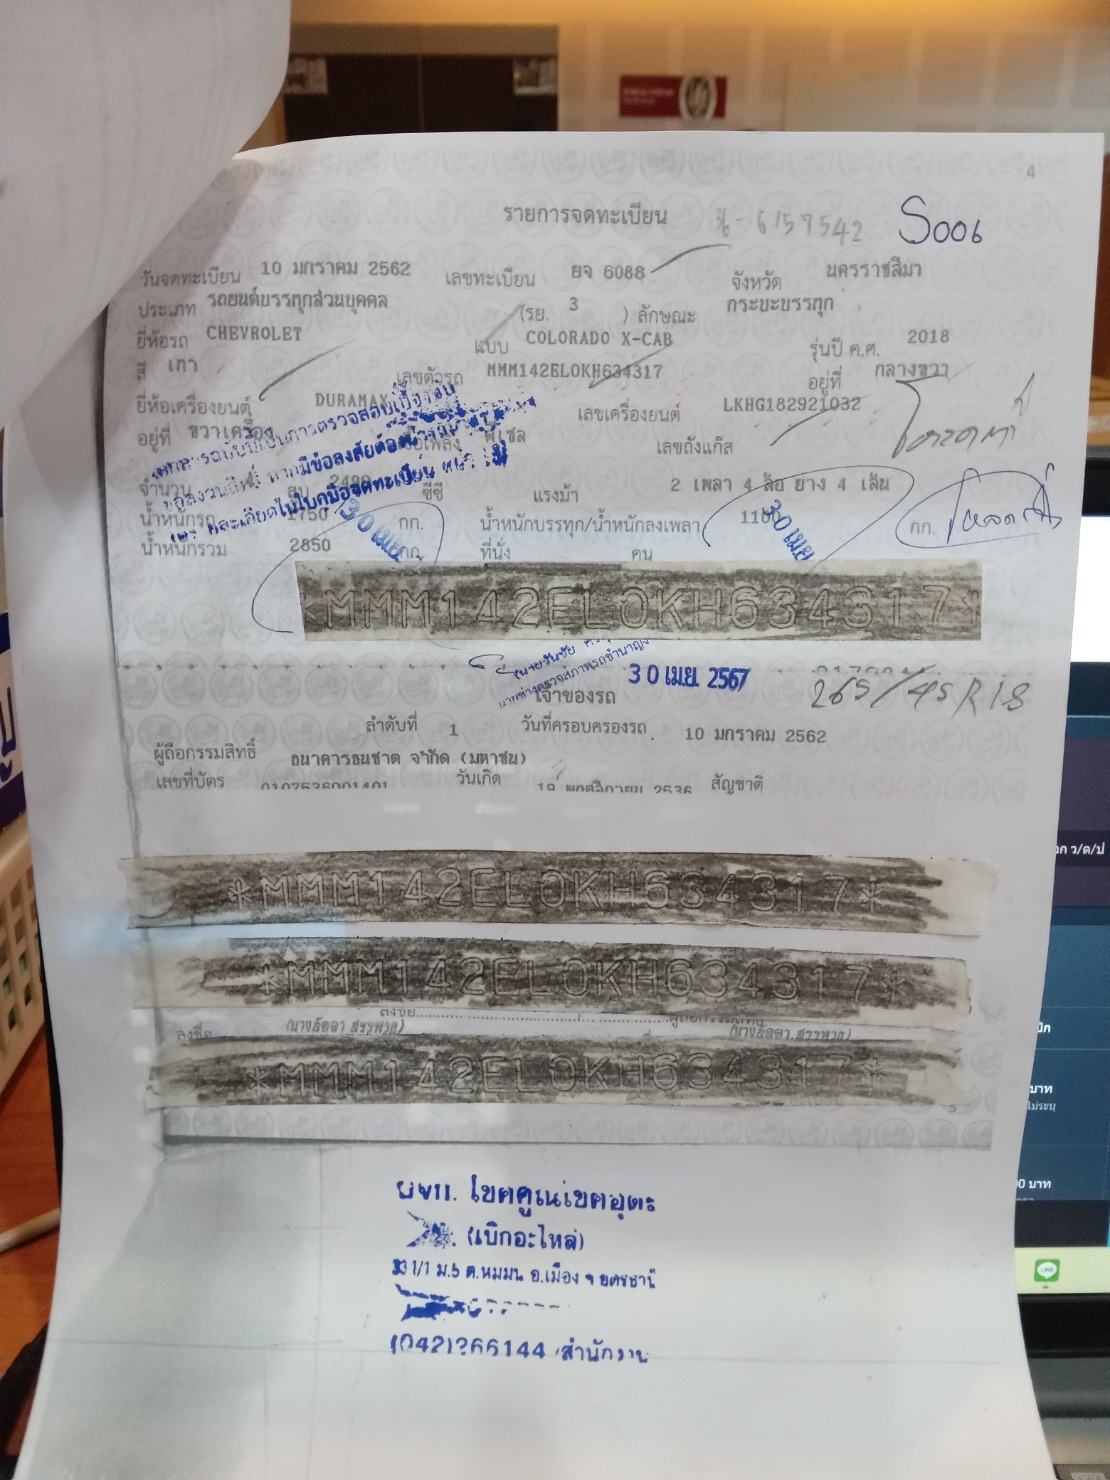 4
รายการจดทะเบียน S006
วันจดทะเบียน 10 มกราคม 2562 เลขทะเบียน ยจ 6088 จังหวัด นครราชสีมา
ประเภท รถยนต์บรรทุกส่วนบุคคล (รย. 3 ) ลักษณะ กระบะบรรทุก
ยี่ห้อรถ CHEVROLET แบบ COLORADO X-CAB รุ่นปี ค.ศ. 2018
สี เทา เลขตัวรถ MMM142ELOKH634317 อยู่ที่ กลางขวา
ยี่ห้อเครื่องยนต์ DURAMAX เลขเครื่องยนต์ LKHG182921032
อยู่ที่ ขวาเครื่อง เชื้อเพลิง ดีเซล เลขถังแก๊ส
จำนวน สูบ ซีซี แรงม้า 2 เพลา 4 ล้อ ยาง 4 เส้น
น้ำหนักรถ 1750 กก. น้ำหนักบรรทุก/น้ำหนักลงเพลา 1100 กก.
น้ำหนักรวม 2850 กก. ที่นั่ง คน
30 เม.ย. 30 เม.ย.
*MMM142EL0KH634317*
30 เม.ย. 2567
เจ้าของรถ 265/45 R18
ลำดับที่ 1 วันที่ครอบครองรถ 10 มกราคม 2562
ผู้ถือกรรมสิทธิ์ ธนาคารธนชาต จำกัด (มหาชน)
เลขที่บัตร 0107536001401 วันเกิด 19 พฤศจิกายน 2536 สัญชาติ
*MMM142EL0KH634317*
*MMM142EL0KH634317*
ลงชื่อ
*MMM142EL0KH634317*
5
โชคคูณโชคอุดร
(เบิกอะไหล่)
(042)266144 สำนักงาน
ว/ด/ป
บาท
ไม่ระบุ
00 บาท
LINE